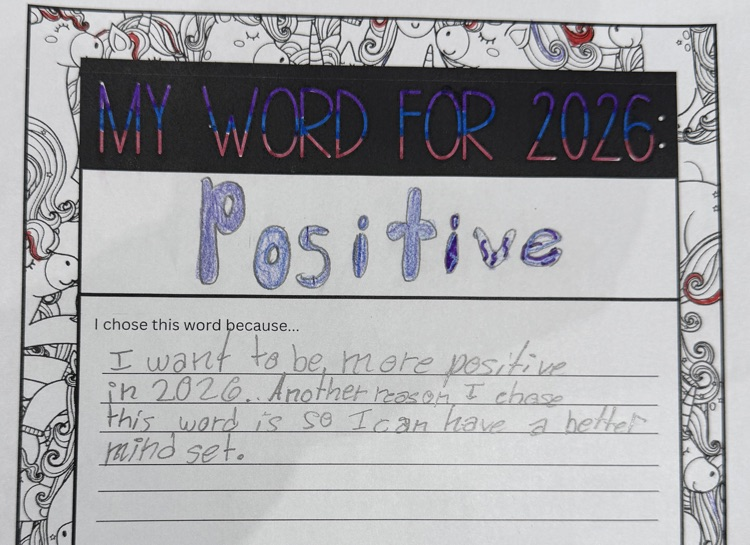 MY WORD FOR 2026:
Positive
I chose this word because...
I want to be more positive
in 2026.. Another reason I chose
this word is so I can have a better
mind set.